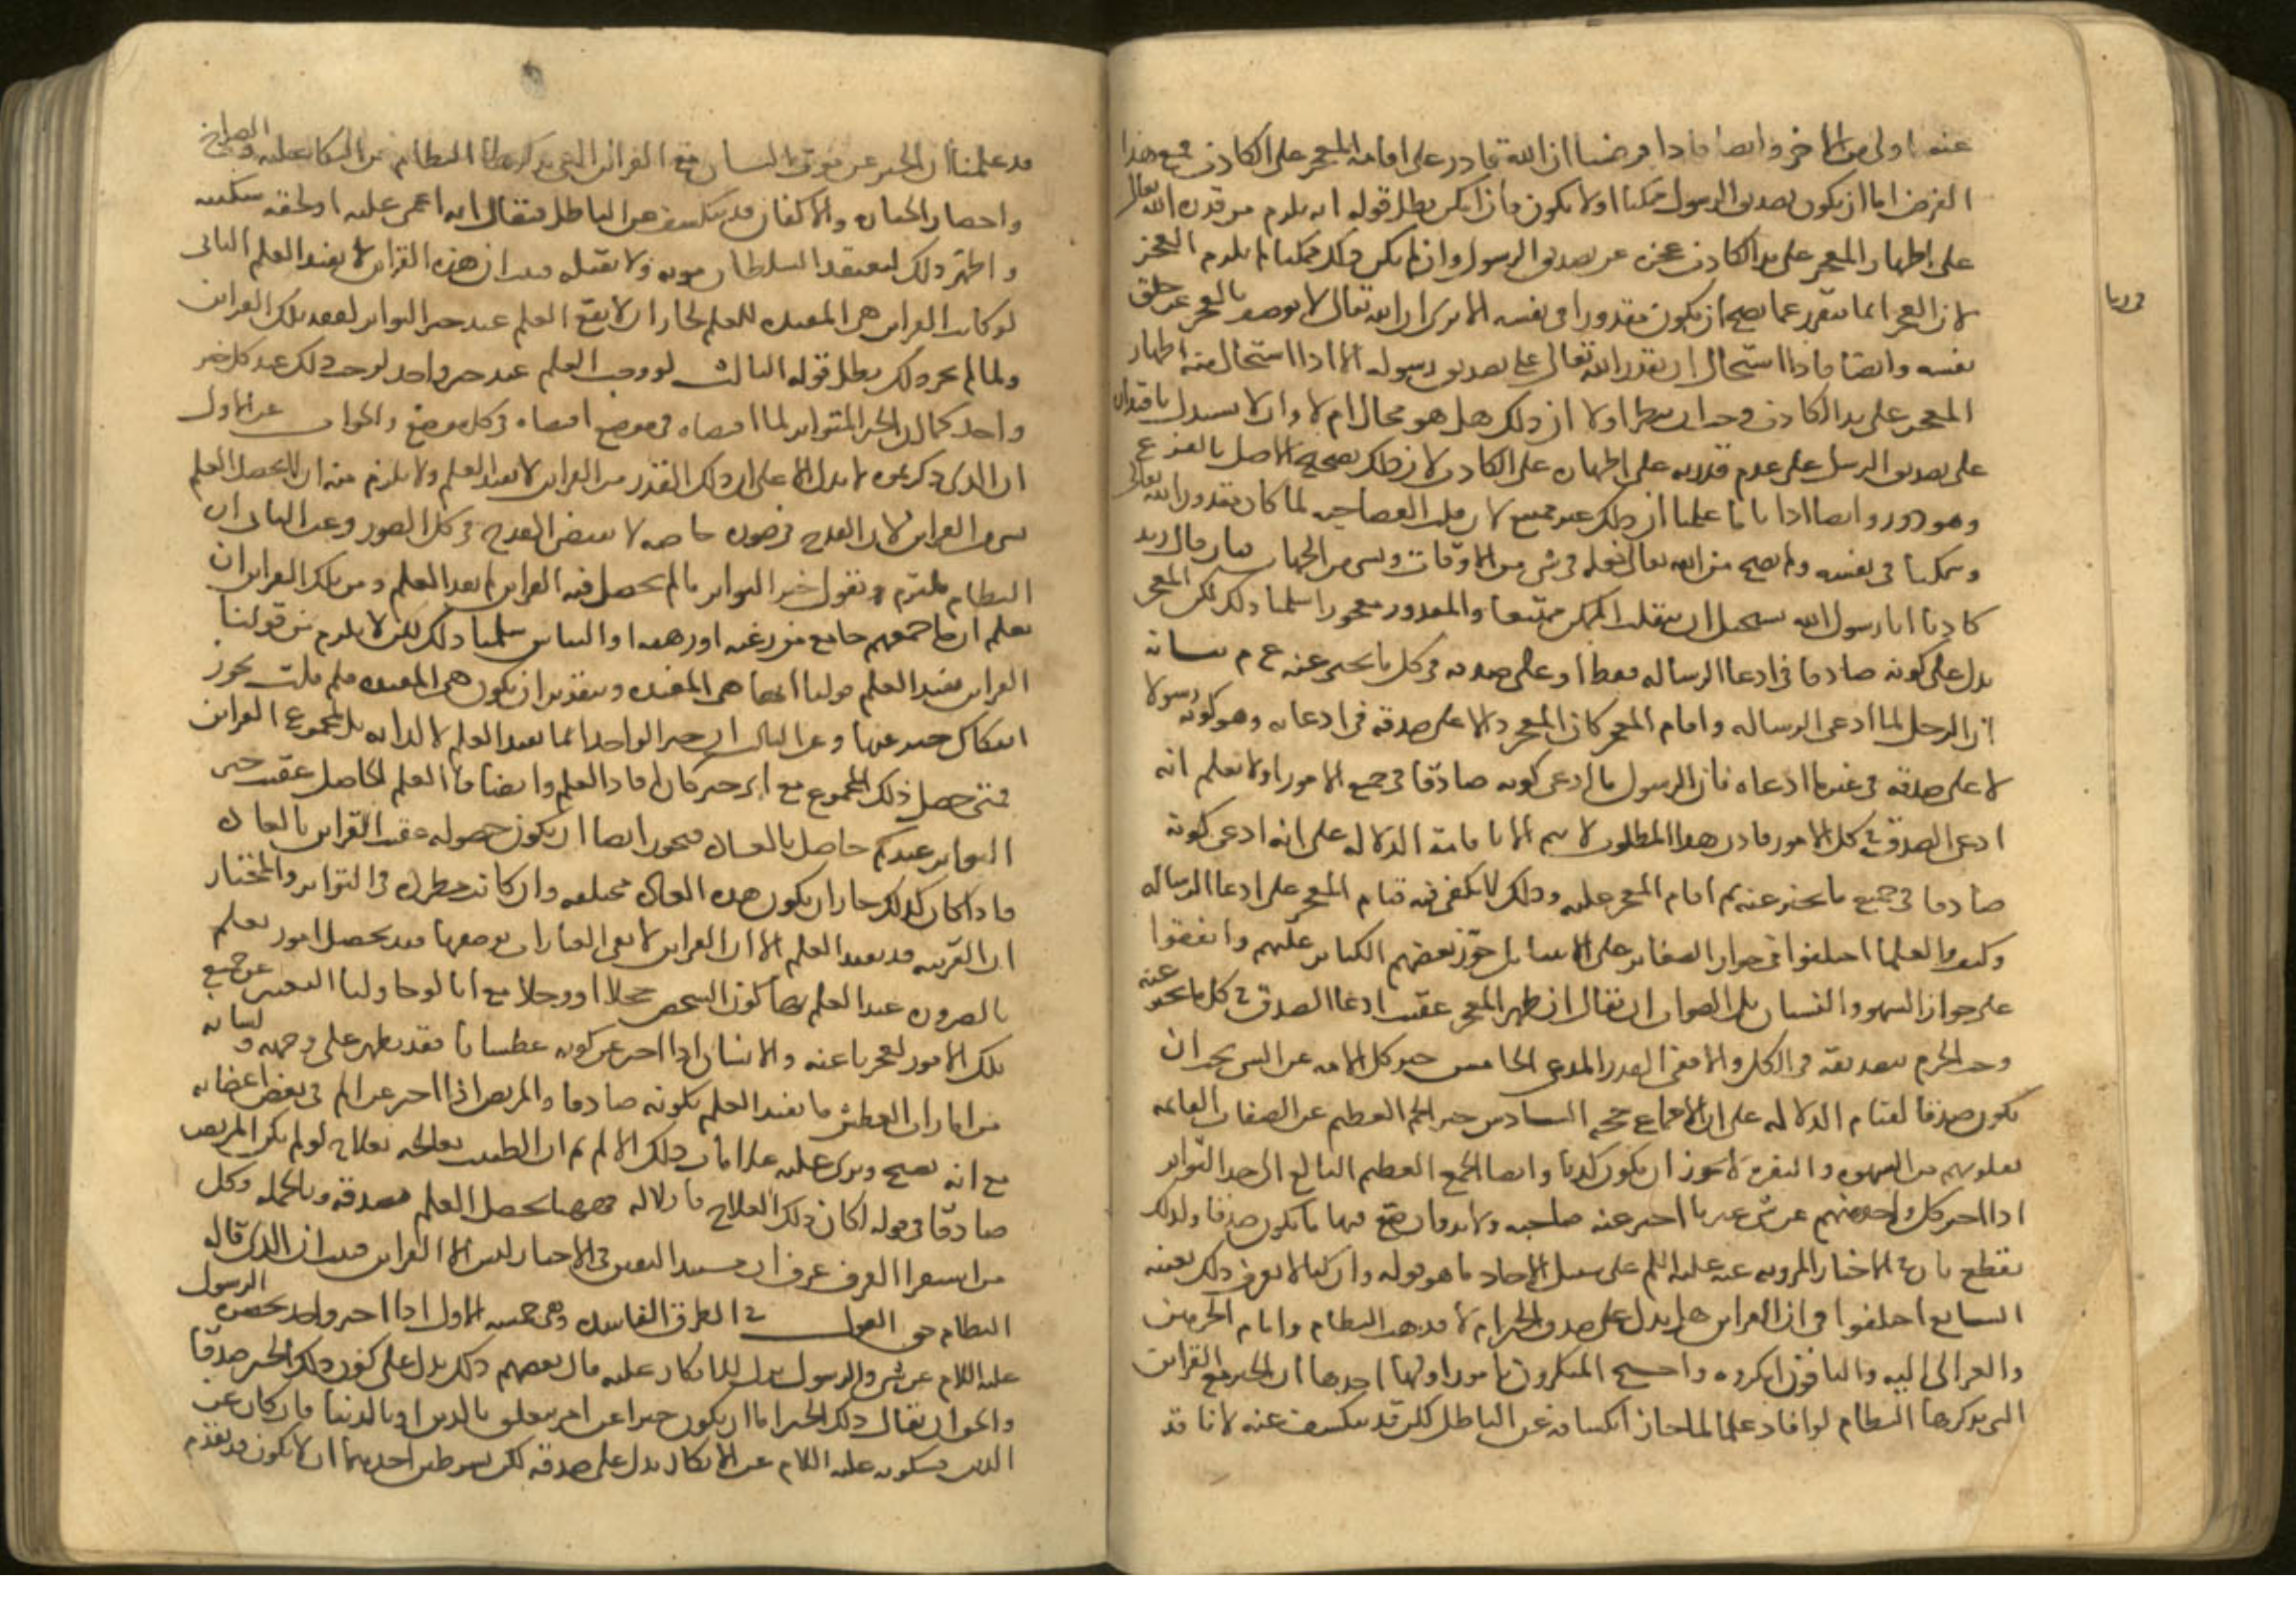 عنه اولى من الاخر وايضا فاذا فرضنا ان الله قادر على اقامه المعجز على الكاذب فمع هذا
الفرض اما ان يكون تصديق الرسول ممكنا اولا يكون فان امكن بطل قوله انه يلزم من قدره الله تعالى
على اظهار المعجز على يد الكاذب عجزه عن تصديق الرسول وان لم يكن ذلك ممكنا لم يلزم العجز
لان العجز انما يتقرر عما يصح ان يكون مقدورا في نفسه الا ترى ان الله تعالى لا يوصف بالعجز عن خلق
نفسه وايضا فاذا استحال ان يقدر الله تعالى على تصديق رسوله الا اذا استحال منه اظهار
المعجز على يد الكاذب وجب ان ينظر اولا ان ذلك هل هو محال ام لا وان لا يستدل باقتداره
على تصديق الرسل على عدم قدرته على اظهاره على الكاذب لان ذلك تصحيح الاصل بالفرع
وهو دور وايضا اذا تاملنا علمنا ان ذلك غير ممتنع لان قلب العصا حيه لما كان مقدورا لله تعالى
وممكنا في نفسه ولم يصح من الله تعالى فعله في شى من الاوقات وبشى من الجهات فبان قال زيد
كاذبا انا رسول الله يستحيل ان ينقلب الممكن ممتنعا والمقدور معجوزا سلمنا ذلك لكن المعجز
يدل على كونه صادقا في ادعا الرساله فقط او على صدقه في كل ما يخبر عنه ع م بيانه
ان الرجل لما ادعى الرساله واقام المعجز كان المعجز دالا على صدقه في ادعاه وهو كونه رسولا
لا على صدقه في غير ما ادعاه فان الرسول ما ادعى كونه صادقا في جميع الامور اولا نعلم انه
ادعى الصدق في كل الامور فاذن هذا المطلوب لا يتم الا باقامه الدلاله على انه ادعى كونه
صادقا في جميع ما يخبر عنه ثم اقام المعجز عليه وذلك لا يكفي فيه قيام المعجز على ادعا الرساله
وكيف والعلما اختلفوا في جواز الصغاير على الانبيا بل جوز بعضهم الكباير عليهم واتفقوا
على جواز السهو والنسيان بل الصواب ان يقال ان ظهر المعجز عقيب ادعا الصدق في كل ما يخبر عنه
وجب الجزم بتصديقه في الكل والا ففي القدر المدعى الخامس خبر كل الامه عن الشى يجب ان
يكون صدقا لقيام الدلاله على ان الاجماع حجه السادس خبر الجمع العظيم عن الصفات القايمه
بقلوبهم من الشهوه والنفره لا يجوز ان يكون كذبا وايضا الجمع العظيم البالغ الى حد التواتر
اذا اخبر كل واحد منهم عن شى غير ما اخبر عنه صاحبه ولا بد وان يقع فيها ما يكون صدقا ولذلك
نقطع بان في الاخبار المرويه عنه عليه السلم على سبيل الاحاد ما هو قوله وان كنا لا نعرف ذلك بعينه
السابع اختلفوا في ان القراين هل يدل على صدق الخبر ام لا فذهب النظام وامام الحرمين
والغزالى اليه والباقون انكروه واحتج المنكرون بامور اولها احدها ان الخبر مع القراين
التي يذكرها النظام لو افاد علما لما جاز انكشافه عن الباطل لكن قد ينكشف عنه لانا قد
في ربا
قد علمنا ان الخبر عن موت انسان مع القراين التي يذكرها النظام من البكا عليه والصراخ
واحضار الجنازه والاكفان قد ينكشف عن الباطل فيقال انه اغمى عليه او لحقه سكته
واظهر ذلك ليعتقد السلطان موته ولا يقتله فبان ان هذه القراين لا يفيد العلم الثانى
لو كانت القراين هى المفيده للعلم لجاز ان لا يقع العلم عند خبر التواتر لفقد تلك القراين
ولما لم يجز ذلك بطل قوله الثالث لو وجب العلم عند خبر واحد لوجب ذلك عند كل خبر
واحد كما ان الخبر المتواتر لما اقتضاه في موضع اقتضاه في كل موضع والجواب عن الاول
ان الذى ذكرتموه لا يدل الا على ان ذلك القدر من القراين لا يفيد العلم ولا يلزم منه ان لا يحصل العلم
بشى من القراين لان القدح في صوره خاصه لا يقتضى القدح في كل الصور وعن الثانى ان
النظام يلتزم ويقول خبر التواتر ما لم يحصل فيه القراين لم يفد العلم ومن تلك القراين ان
يعلم ان ما جمعهم جامع من رغبه او رهبه او التباس سلمنا ذلك لكن لا يلزم من قولنا
القراين تفيد العلم قولنا انها هى المفيده وبتقدير ان يكون هى المفيده فلم قلت يجوز
انفكاك خبر عنها وعن الثالث ان خبر الواحد انما يفيد العلم لا لذاته بل لمجموع القراين
فمتى حصل ذلك المجموع مع اى خبر كان افاد العلم وايضا فالعلم الحاصل عقيب خبر
التواتر عندكم حاصل بالعاده فيجوز ايضا ان يكون حصوله عقيب القراين بالعاده
فاذا كان كذلك جاز ان يكون هذه العاده مختلفه وان كانت مطرده في التواتر والمختار
ان القرينه قد يفيد العلم الا ان القراين لا يفى العبارات بوصفها فقد يحصل امور يعلم
بالضروره عند العلم بها كون الشخص خجلا او وجلا مع انا لو حاولنا التعبير عن جميع
تلك الامور لعجزنا عنه والانسان اذا اخبر عن كونه عطشانا فقد يظهر على وجهه ولسانه
من امارات العطش ما يفيد العلم بكونه صادقا والمريض اذا اخبر عن الم في بعض اعضايه
مع انه يصيح ويرى عليه علامات ذلك الالم ثم ان الطبيب يعالجه بعلاج لو لم يكن المريض
صادقا في قوله لكان ذلك العلاج قاتلا له فههنا يحصل العلم بصدقه وبالجمله وكل
من استقرا العرف عرف ان مستند اليقين في الاخبار ليس الا القراين فبان ان الذى قاله
النظام حق القول في الطرق الفاسده وهى خمسه الاول اذا اخبر واحد بحضره الرسول
عليه السلام عن شى والرسول ترك الانكار عليه قال بعضهم ذلك يدل على كون ذلك الخبر صدقا
والحق ان يقال ذلك الخبر اما ان يكون خبرا عن امر يتعلق بالدين او بالدنيا فان كان عن
الدين فسكوته عليه السلام عن الانكار يدل على صدقه لكن بشرطين احدهما ان لا يكون قد تقدم